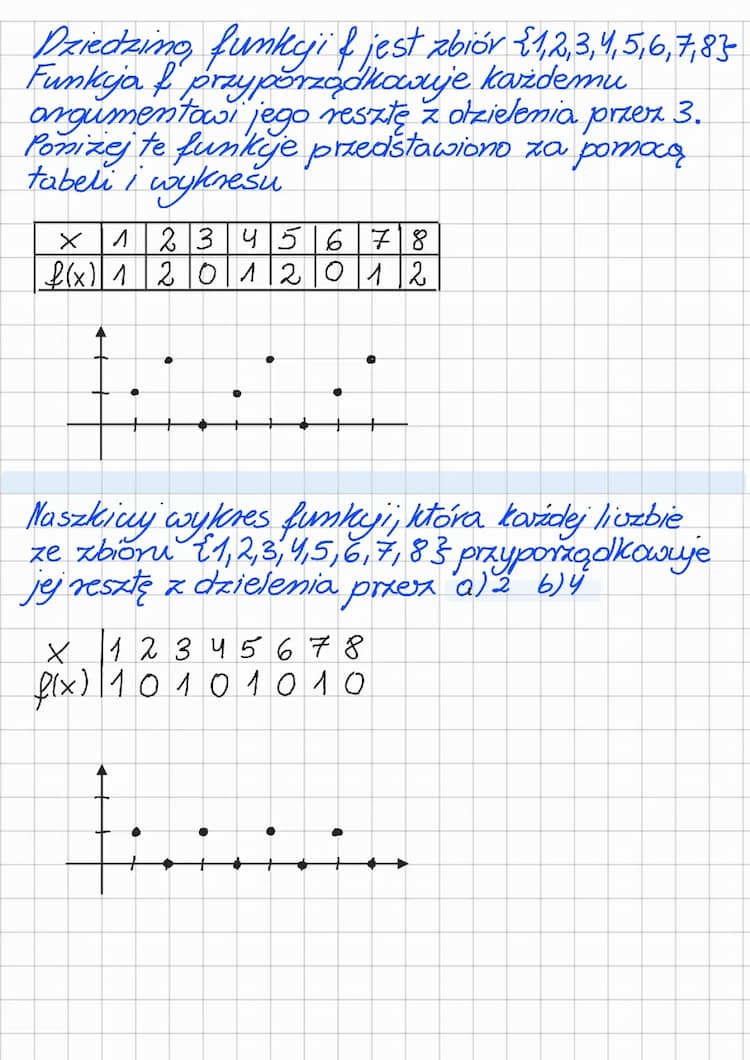 Dziedziną funkcji f jest zbiór {1,2,3,4,5,6,7,8}
Funkcja f przyporządkowuje każdemu
argumentowi jego resztę z dzielenia przez 3.
Poniżej te funkcje przedstawiono za pomocą
tabeli i wykresu
x 1 2 3 4 5 6 7 8
f(x) 1 2 0 1 2 0 1 2
Naszkicuj wykres funkcji, która każdej liczbie
ze zbioru {1,2,3,4,5,6,7,8} przyporządkowuje
jej resztę z dzielenia przez a)2 b)4
x 1 2 3 4 5 6 7 8
f(x) 1 0 1 0 1 0 1 0